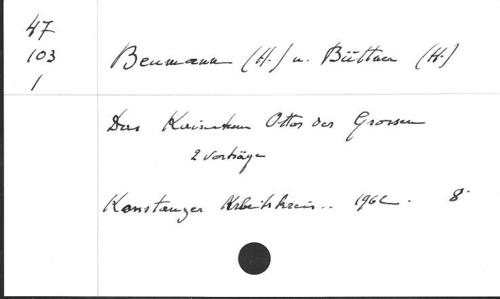 47
103
1
Beumann (H.) u. Büttner (H.)
Das Kaisertum Ottos des Grossen
2 Vorträge
Konstanzer Arbeitskreis.. 1962. 8°